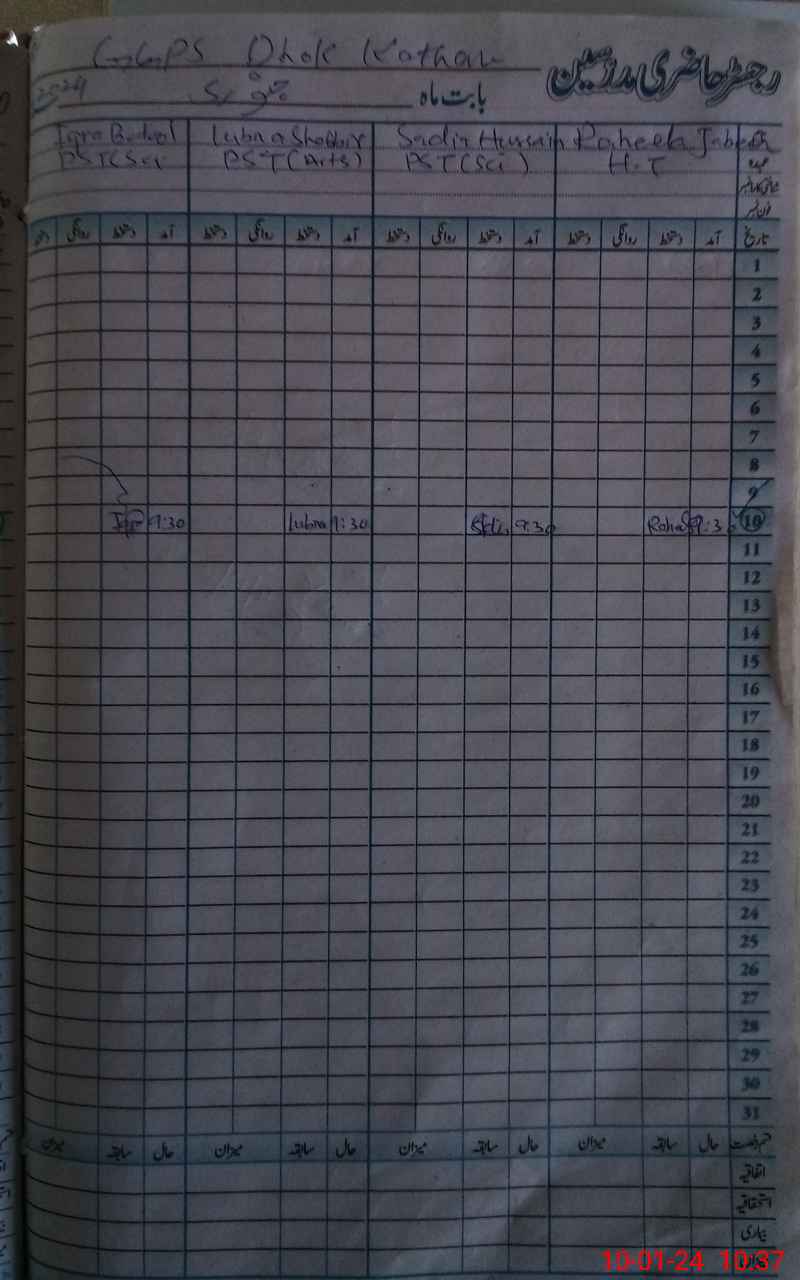 GGPS Dhok Kathan
رجسٹر حاضری مدرسین
بابت ماہ جنوری 2024
Raheela Jabeen Sadia Hussain Lubna Shabbir Iqra Batool
عہدہ H.T PST(Sci) PST(Arts) PST(Sci
فون نمبر
تاریخ آمد دستخط روانگی دستخط آمد دستخط روانگی دستخط آمد دستخط روانگی دستخط آمد دستخط روانگی
1
2
3
4
5
6
7
8
9
10 9:30 9:30 9:30 Lubna 9:30 Iqra
11
12
13
14
15
16
17
18
19
20
21
22
23
24
25
26
27
28
29
30
31
قسم رخصت حال سابقہ میزان حال سابقہ میزان حال سابقہ میزان حال سابقہ میزان
اتفاقیہ
استحقاقیہ
بیماری
10-01-24 10:37